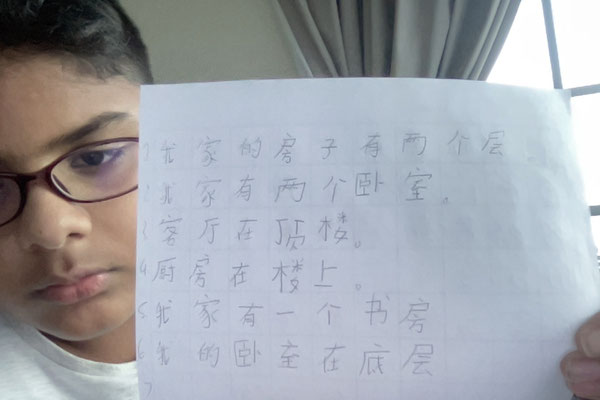 1 我家的房子有两个层
2 我家有两个卧室。
3 客厅在顶楼。
4 厨房在楼上。
5 我家有一个书房
6 我的卧室在底层
7